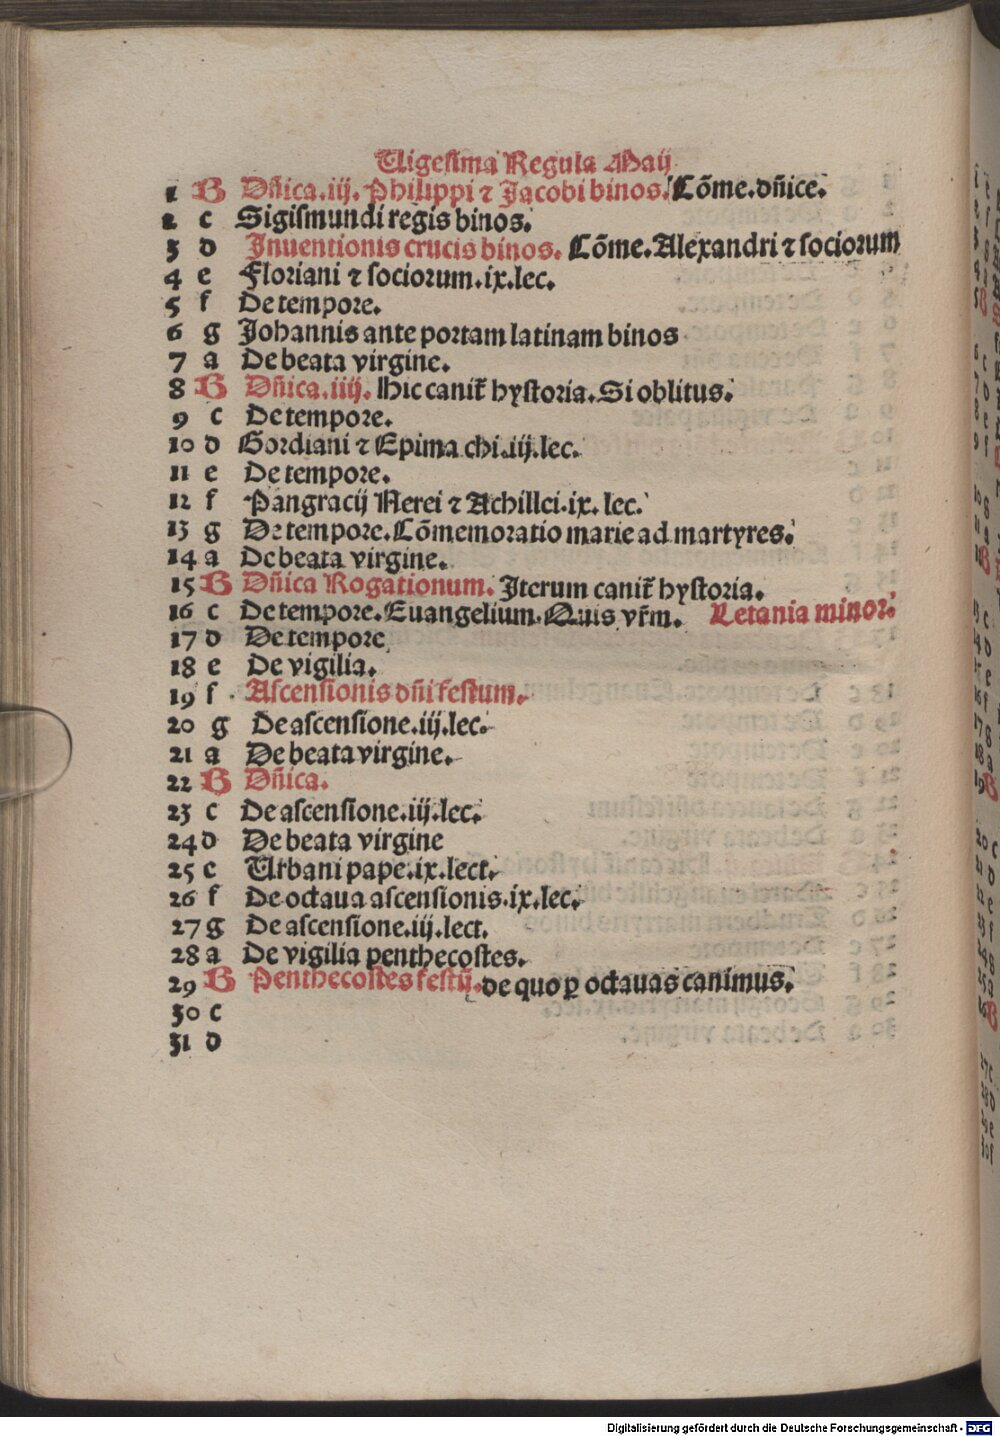 Uigesima Regula Maij
1 B Dñica.iij. Philippi ⁊ Jacobi binos. Cõme.dñice.
2 c Sigismundi regis binos.
3 d Inuentionis crucis binos. Cõme. Alexandri ⁊ sociorum
4 e Floriani ⁊ sociorum.ix.lec.
5 f De tempore.
6 g Johannis ante portam latinam binos
7 a De beata virgine.
8 B Dñica.iiij. Hic canit̃ hystoria. Si oblitus.
9 c De tempore.
10 d Gordiani ⁊ Epimachi.iij.lec.
11 e De tempore.
12 f Pangracij Nerei ⁊ Achillei.ix.lec.
13 g De tempore. Cõmemoratio marie ad martyres.
14 a De beata virgine.
15 B Dñica Rogationum. Iterum canit̃ hystoria.
16 c De tempore. Euangelium. Quis vr̃m. Letania minor.
17 d De tempore
18 e De vigilia.
19 f Ascensionis dñi festum.
20 g De ascensione.iij.lec.
21 a De beata virgine.
22 B Dñica.
23 c De ascensione.iij.lec.
24 d De beata virgine
25 e Urbani pape.ix.lect.
26 f De octaua ascensionis.ix.lec.
27 g De ascensione.iij.lect.
28 a De vigilia penthecostes.
29 B Penthecostes festũ. de quo ꝑ octauas canimus.
30 c
31 d
Digitalisierung gefördert durch die Deutsche Forschungsgemeinschaft - DFG